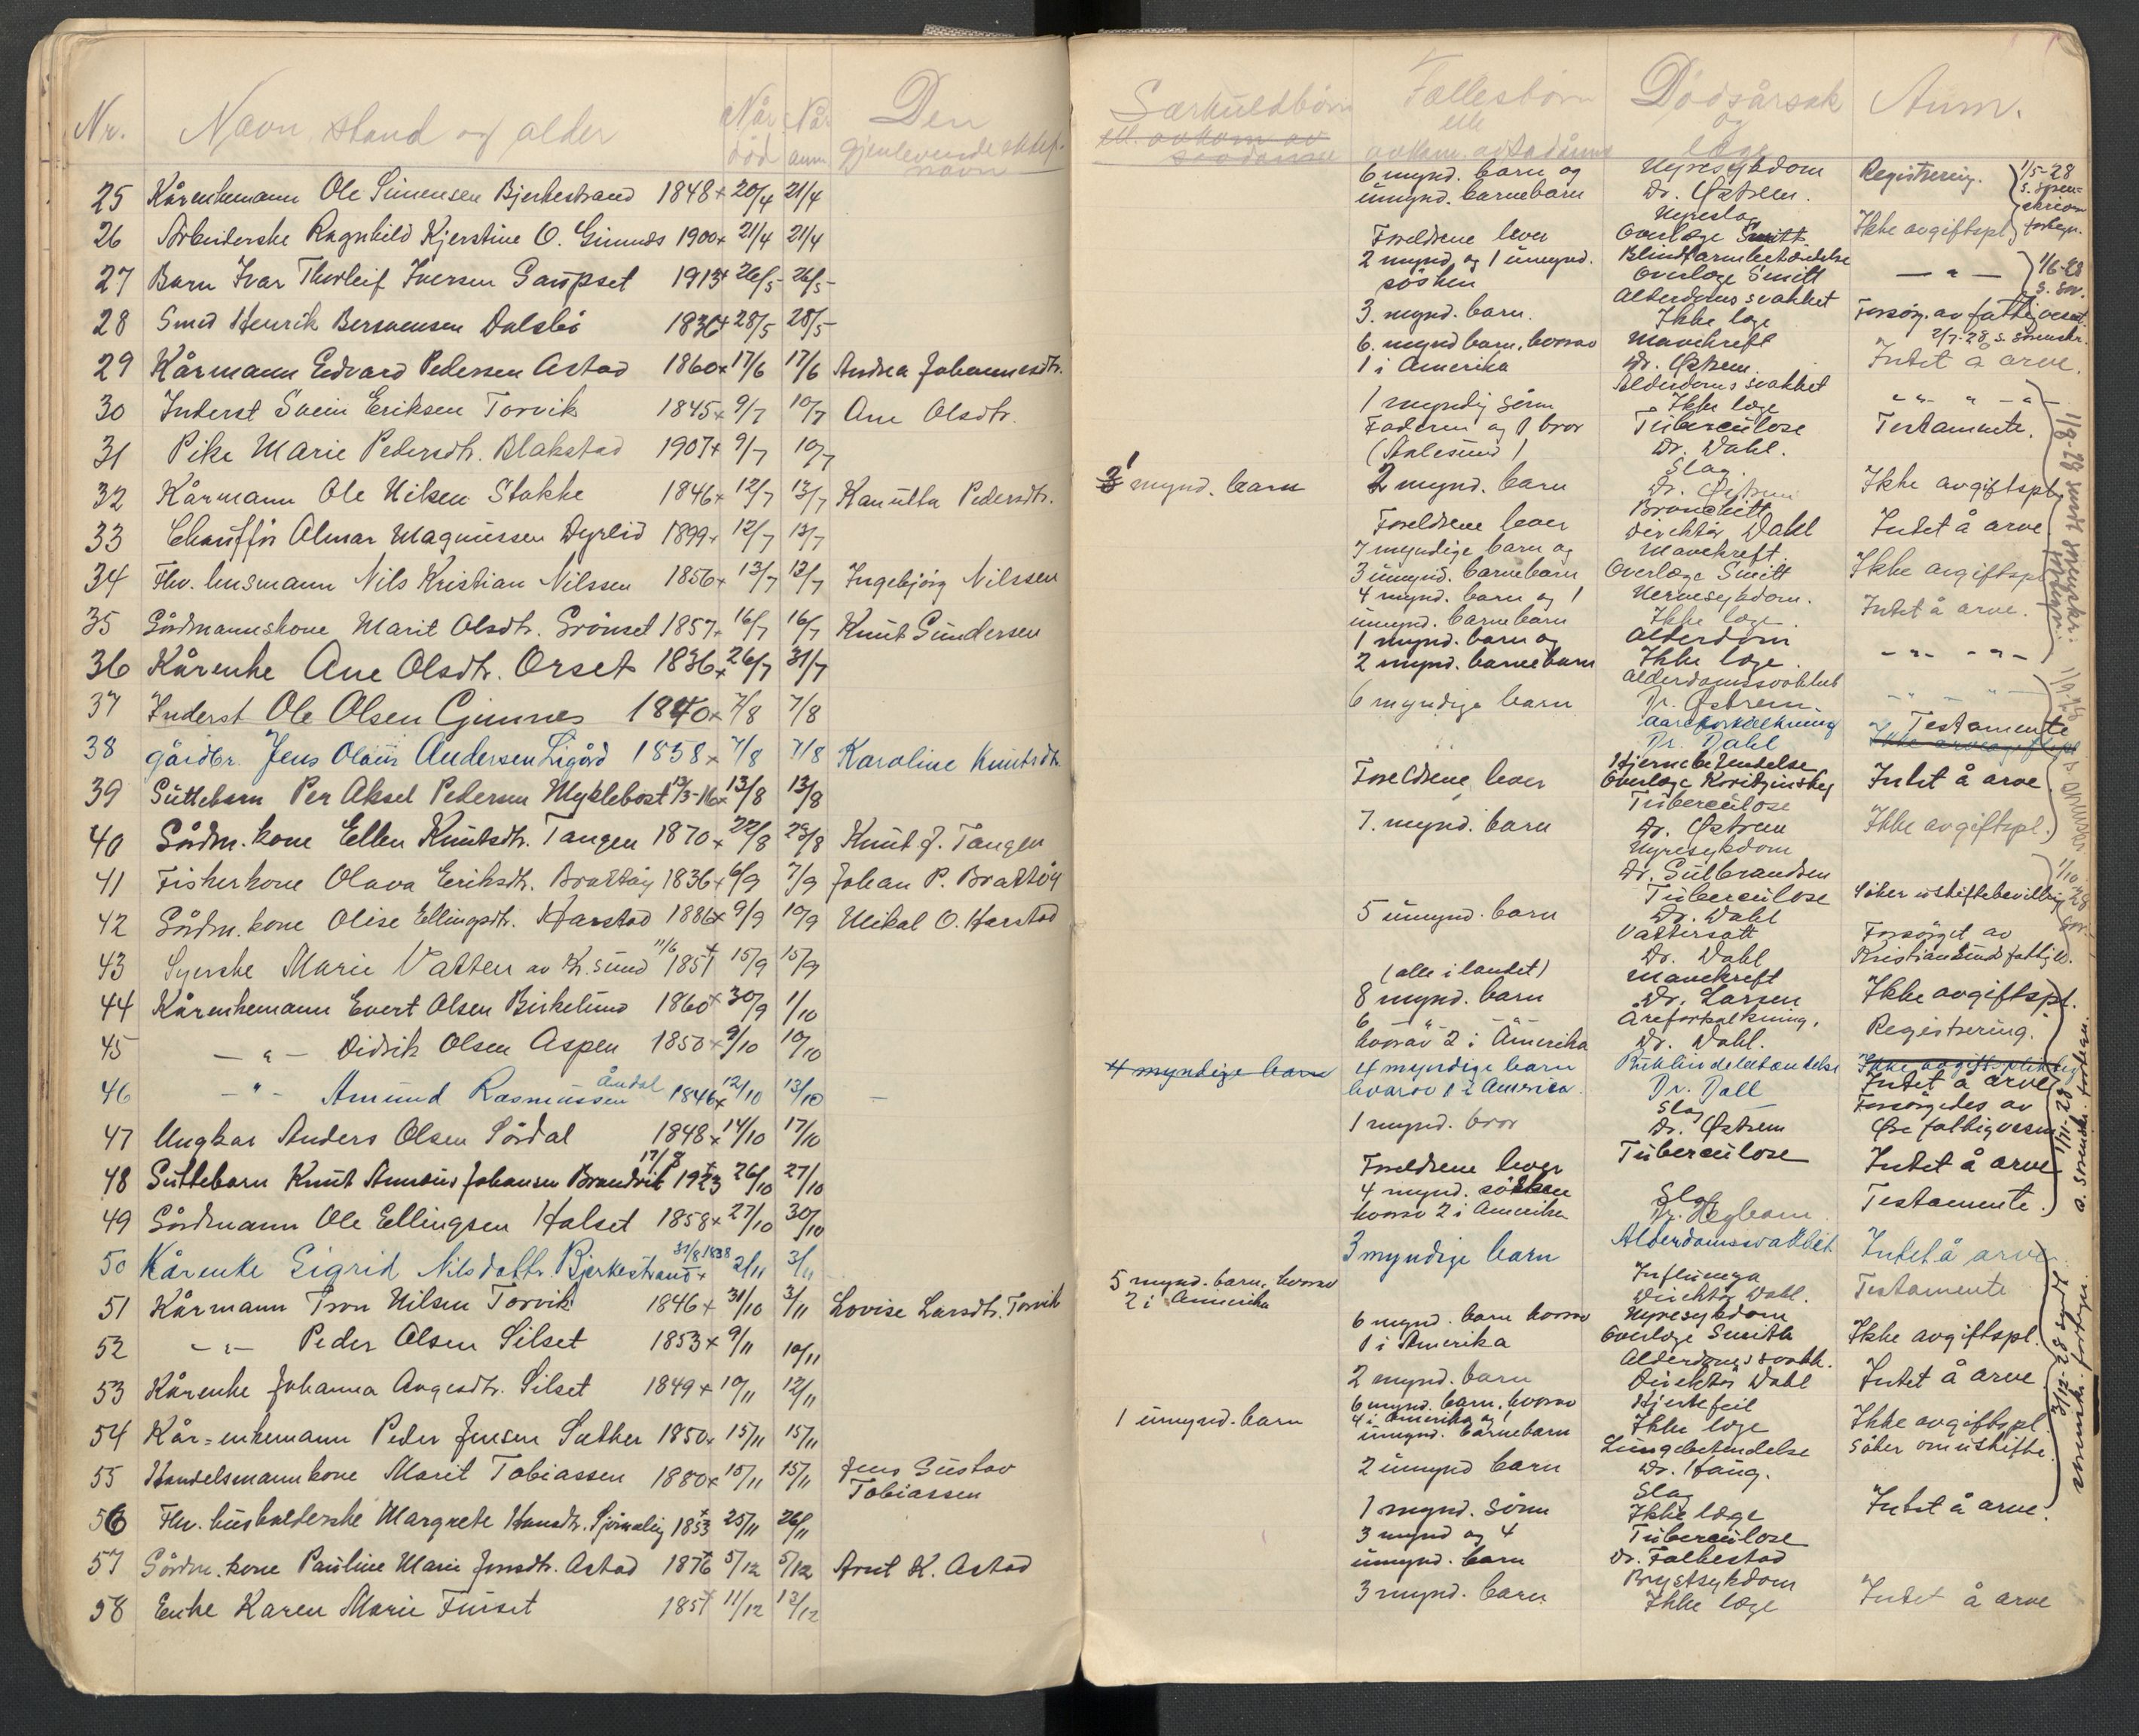 Nr. Navn, stand og alder Når død Når anm. Den gjenlevende ektef. navn
25 Kårenkemann Ole Simensen Bjerkestrand 1848 + 20/4 21/4
26 Arbeiderske Ragnhild Kjerstine O. Gimnes 1900 + 21/4 21/4
27 Barn Ivar Thorleif Iversen Gaupset 1913 + 26/5 26/5
28 Smed Henrik Bersvensen Dalsbø 1836 + 28/5 28/5
29 Kårmann Edvard Pedersen Astad 1860 + 17/6 17/6 Andrea Johannesdtr.
30 Inderst Svein Eriksen Torvik 1845 + 9/7 10/7 Ane Olsdtr.
31 Pike Marie Pedersdtr. Blakstad 1907 + 9/7 10/7
32 Kårmann Ole Nilsen Stokke 1846 + 12/7 13/7 Kanutta Pedersdtr.
33 Chauffør Almar Magnussen Dyrlid 1899 + 12/7 13/7
34 Fhv. husmann Nils Kristian Nilssen 1856 + 13/7 13/7 Ingebjørg Nilssen
35 Gårdmannskone Marit Olsdtr. Grønset 1857 + 16/7 16/7 Knut Gundersen
36 Kårenke Ane Olsdtr. Orset 1836 + 26/7 31/7
37 Inderst Ole Olsen Gimnes 1840 + 7/8 7/8
38 gårdbr. Jens Olaus Andersen Ligård 1858 + 7/8 7/8 Karoline Knutsdtr.
39 Guttebarn Per Aksel Pedersen Myklebost 13/3-16 + 13/8 13/8
40 Gårdm. kone Ellen Knutsdtr. Tangen 1870 + 22/8 23/8 Knut J. Tangen
41 Fiskerkone Olava Eriksdtr. Brattøy 1836 + 6/9 7/9 Johan P. Brattøy
42 Gårdm. kone Olise Ellingsdtr. Harstad 1886 + 9/9 10/9 Mikal O. Harstad
43 Syerske Marie Vatten av Kr.sund 11/6 1851 + 15/9 15/9
44 Kårenkemann Evert Olsen Birkelund 1860 + 30/9 1/10
45 — " — Didrik Olsen Aspen 1850 + 9/10 10/10
46 — " — Amund Rasmussen Åndal 1846 + 12/10 13/10 —
47 Ungkar Anders Olsen Sørdal 1848 + 14/10 17/10
48 Guttebarn Knut Annæus Johansen Brandvik 17/8 1923 + 26/10 27/10
49 Gårdmann Ole Ellingsen Halset 1858 + 27/10 30/10
50 Kårenke Sigrid Nilsdattr. Bjerkestrand 31/8 1838 + 2/11 3/11
51 Kårmann Tron Nilsen Torvik 1846 + 31/10 3/11 Lovise Larsdtr. Torvik
52 — " — Peder Olsen Silset 1853 + 9/11 10/11
53 Kårenke Johanna Aagesdtr. Silset 1849 + 10/11 12/11
54 Kår=enkemann Peder Jensen Sæther 1850 + 15/11 15/11
55 Handelsmannkone Marit Tobiassen 1880 + 10/11 15/11 Jens Gustav
Tobiassen
56 Fhv. husholderske Margrete Hansdtr. 1853 + 25/11 26/11
57 Gårdm. kone Pauline Marie Jonsdtr. Astad 1876 + 5/12 5/12 Arnt K. Astad
58 Enke Karen Marie Furset 1851 + 11/12 13/12
Særkuldbørn ell. avkom av sådanne Fællesbørn elle avkom av sådanne Dødsårsak og læge Anm.
6 mynd. barn og Nyresykdom Registrering. 1/5-28
umynd. barnebarn Dr. Østrem.
Nyreslag
Foreldrene lever Overlæge Smitt Ikke avgiftspl.
2 mynd. og 1 umynd. Blindtarmbetændelse
søsken Overlæge Smitt — " — 1/6-28
3. mynd. barn. Alderdomssvakhet
Ikke læge Forsørg. av fattigvesenet
6. mynd barn, hvorav Mavekreft 2/7-28 s. sorenskr.
1 i Amerika Dr. Østrem. Intet å arve.
1 myndig sønn Alderdomssvakhet
Ikke læge — " — " —
Faderen og 1 bror Tuberculose Testamente.
(Aalesund) Dr. Dahl.
1 mynd. barn 2 mynd. barn Slag.
Dr. Østrem Ikke avgiftspl.
Foreldrene lever Bronchitt
Direktør Dahl Intet å arve
7 myndige barn og Mavekreft.
3 umynd. barnebarn Overlæge Smitt Ikke avgiftspl.
4 mynd. barn og 1 Nervesykdom.
umynd. barnebarn Ikke læge. Intet å arve.
1 mynd. barn og Alderdom
2 mynd. barnebarn Ikke læge. — " — " —
6 myndige barn Alderdomssvakhet
Dr. Østrem. — " — " —
Aareforkalkning Testamente
Dr. Dahl
Foreldrene lever Hjernebetendelse
Overlæge Intet å arve
7. mynd. barn Tuberculose
Dr. Østrem Ikke avgiftspl.
Nyresykdom
Dr. Gulbrandsen
5 umynd. barn Tuberculose Søker uskiftebevilling
Dr. Dahl
Vattersott Forsørget av
Dr. Dahl Kristiansunds fattigv.
(alle i landet) Mavekreft
8 mynd. barn Dr. Larsen Ikke avgiftspl.
6 — " — " Åreforkalkning.
hvorav 2 i Amerika Dr. Dahl. Registrering.
4 myndige barn 4 myndige barn Ikke avgiftspliktig
hvorav 1 i America. Dr. Dall Intet å arve
1 mynd. bror Slag Forsørgedes av
Dr. Østrem Øre fattigvesen
Foreldrene lever Tuberculose Intet å arve
4 mynd. søsken Slag Testamente.
hvorav 2 i Amerika
3 myndige barn Alderdomssvakhet Intet å arve
5 mynd. barn, hvorav Influensa
2 i Amerika Direktør Dahl. Testamente
6 mynd. barn hvorav Nyresykdom
1 i Amerika Overlæge Smith Ikke avgiftspl.
2 mynd. barn Alderdomssvakh.
Direktør Dahl Intet å arve
6 mynd. barn, hvorav Hjertefeil
4 i Amerika og 1
1 umynd. barn umynd. barnebarn Ikke læge Ikke avgiftspl.
2 umynd barn Lungebetendelse Søker om uskifte.
Dr. Haug.
1 mynd. sønn Slag
Ikke læge Intet å arve.
3 mynd og 4 Tuberculose
umynd. barn Dr. Falkestad
3 mynd. barn Brystsykdom
Ikke læge Intet å arve